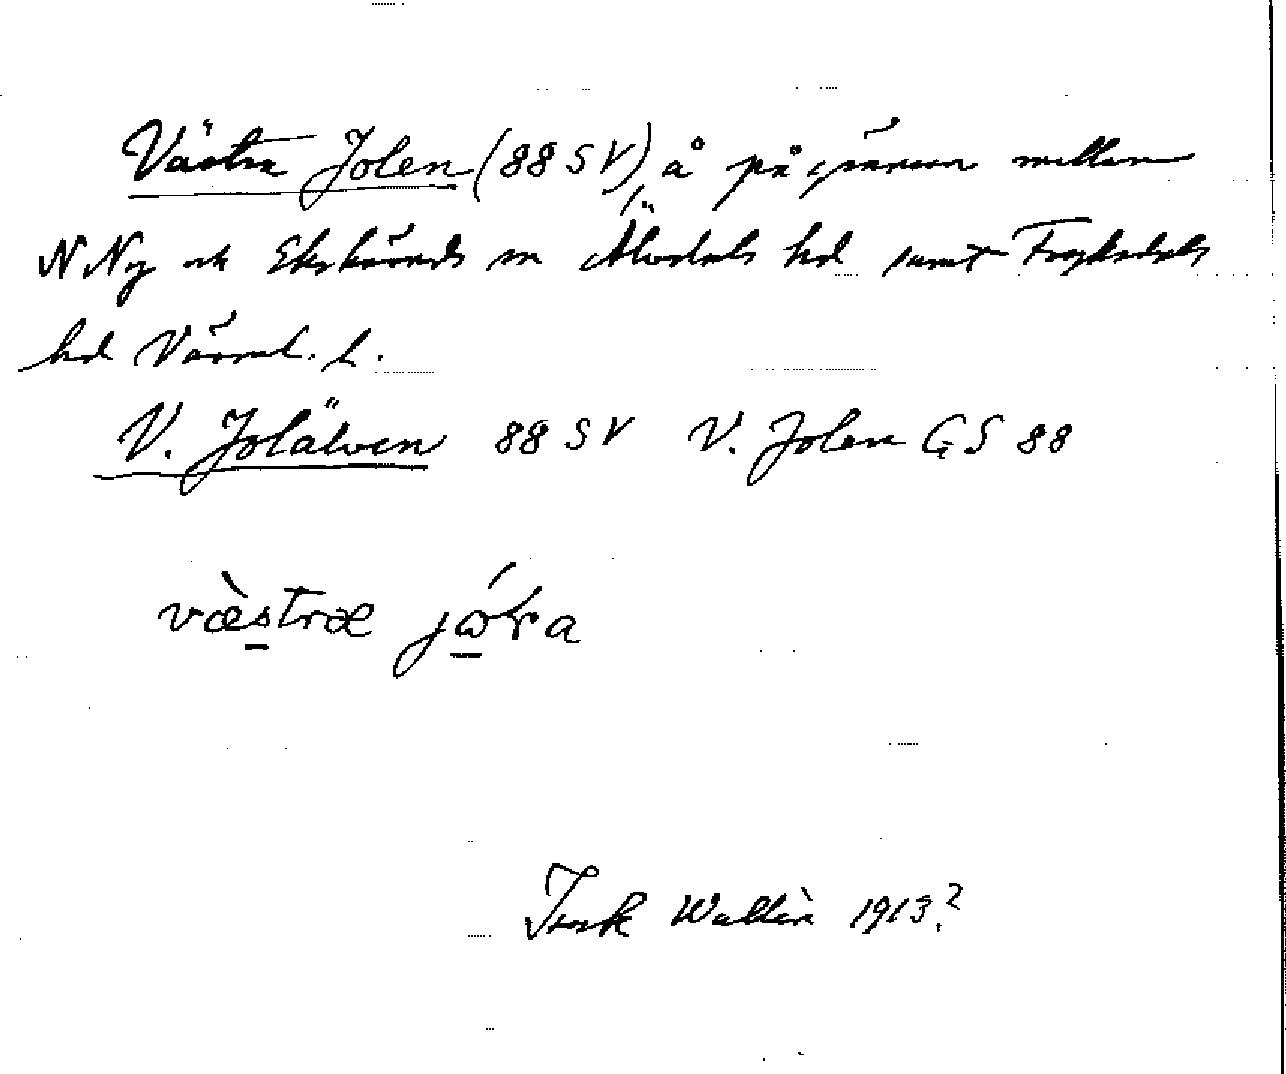 Västra Jolen (88 SV), å på gränsen mellan
N Ny och Ekshärads sn Älvdals hd samt Fryksdals
hd Värml. l.
V. Jolälven 88 SV V. Jolen GS 88
væ̀stræ jώra
Isak Wallin 1913?